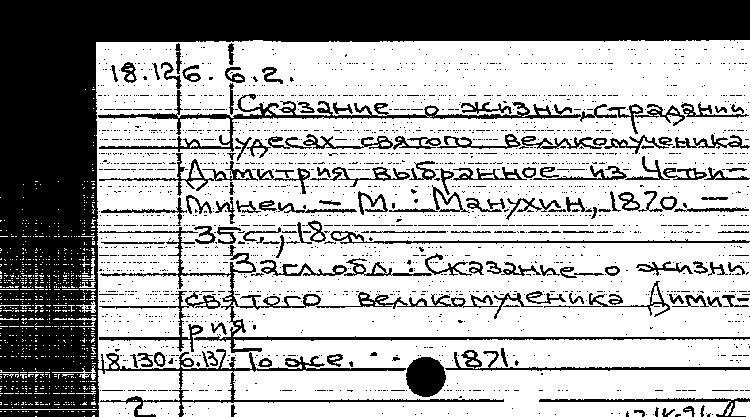 18.126.6.2.
Сказание о жизни, страдании
и чудесах святого великомученика
Димитрия, выбранное из Четьи-
Минеи. — М. : Манухин, 1870. —
35с.; 18см.
Загл. обл. : Сказание о жизни
святого великомученика Димит-
рия.
18.130.6.137. То же. . . 1871.
2